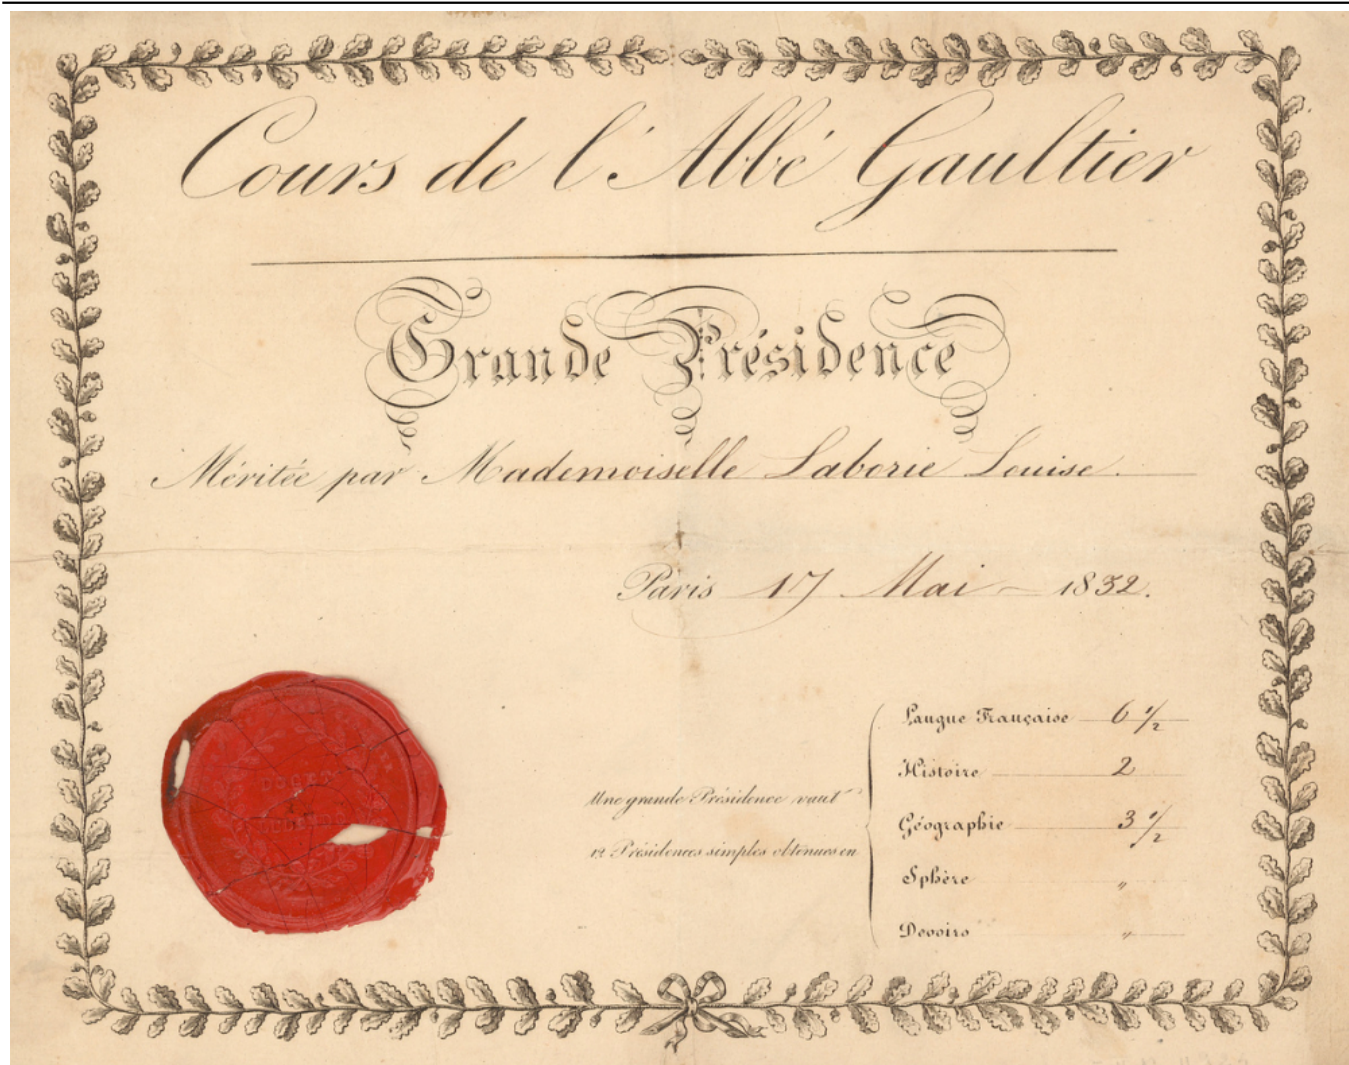 Cours de l'Abbé Gaultier
Grande Présidence
Méritée par Mademoiselle Laborie Louise.
Paris 17 Mai 1832.
Une grande Présidence vaut
12 Présidences simples obtenues en
Langue Française 6 1/2
Histoire 2
Géographie 3 1/2
Sphère "
Devoirs "
DOCET
LUDENDO